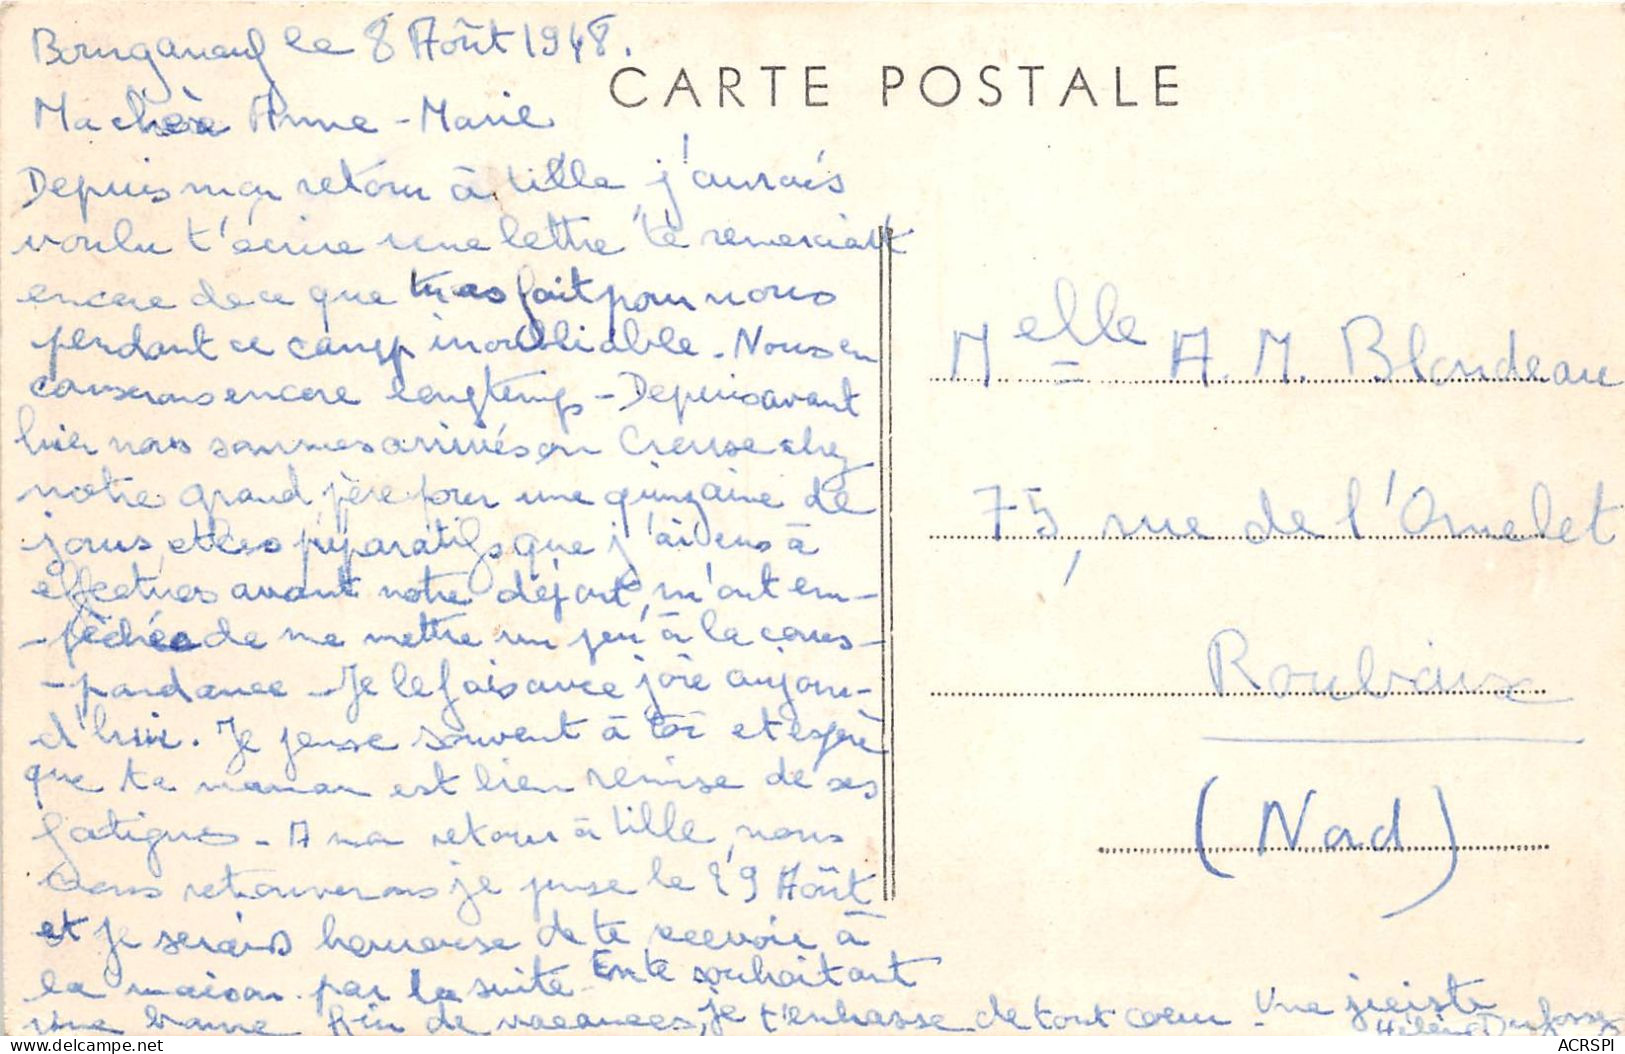 Bourganeuf le 8 Août 1948.
CARTE POSTALE
Ma chère Anne-Marie
Depuis mon retour à Lille j'aurais
voulu t'écrire une lettre te remerciant
encore de ce que tu as fait pour nous
pendant ce camp inoubliable. Nous en
causerons encore longtemps - Depuis avant
hier nous sommes arrivés en Creuse chez
notre grand père pour une quinzaine de
jours, et les préparatifs que j'ai eus à
effectuer avant notre départ, m'ont em-
-pêchée de me mettre un peu à la corres-
-pondance - Je le fais avec joie aujour-
d'hui. Je pense souvent à toi et espère
que ta maman est bien remise de ses
fatigues - A mon retour à Lille, nous
nous retrouverons je pense le 29 Août
et je serais heureuse de te recevoir à
la maison par la suite - En te souhaitant
une bonne fin de vacances, je t'embrasse de tout coeur - Une jéciste
Hélène Dufosse
Melle A. M. Blondeau
75, rue de l'Omelet
Roubaix
(Nord)
ACRSPI